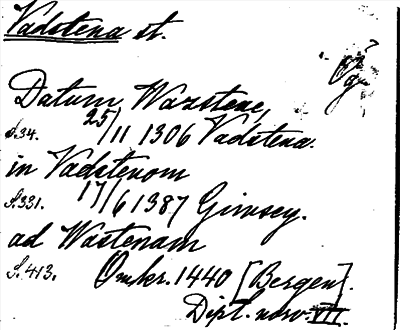 Vadstena st.
Ög
Datum, Wazstene,
S.34. 25/11 1306 Vadstena.
in Vadstenom
S.331. 17/6 1387 Gimsey.
ad Wastenam
S.413. Omkr. 1440 [Bergen].
Dipl. norv. VII.